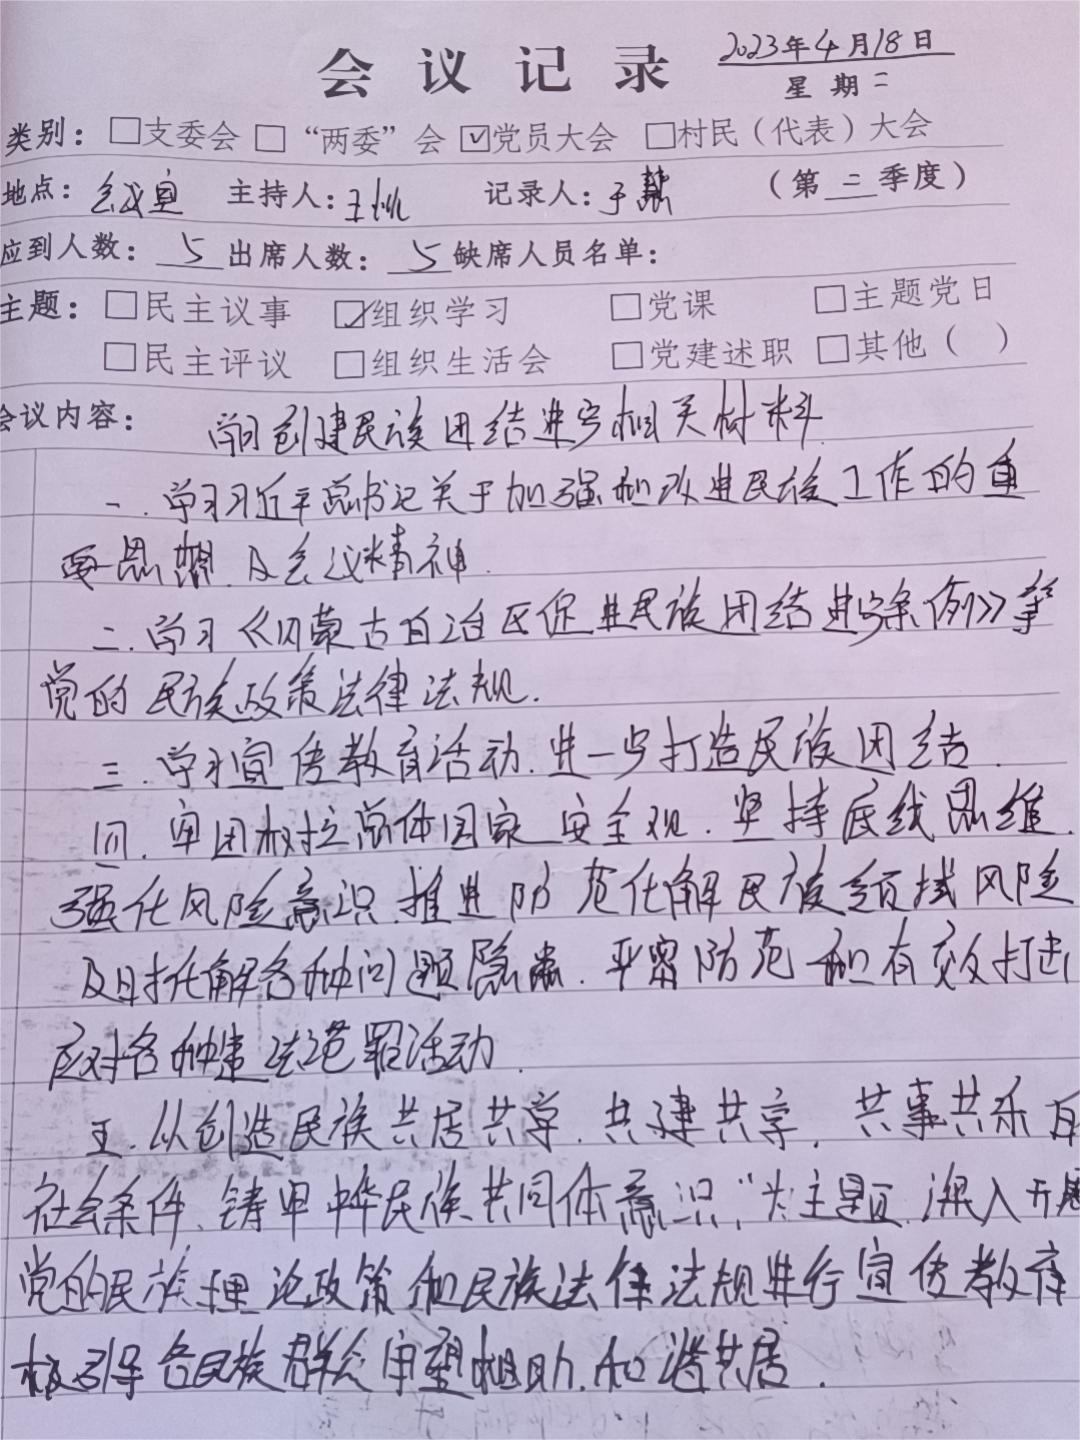 会议记录 2023年4月18日
星期二
类别：□支委会 □“两委”会 ☑党员大会 □村民（代表）大会
地点：会议室 主持人：王 记录人：于慧 （第二季度）
应到人数：5 出席人数：5 缺席人员名单：
主题：□民主议事 ☑组织学习 □党课 □主题党日
□民主评议 □组织生活会 □党建述职 □其他（ ）
会议内容： 学习创建民族团结进步相关材料
一.学习习近平总书记关于加强和改进民族工作的重
要思想.及会议精神.
二.学习《内蒙古自治区促进民族团结进步条例》等
党的民族政策法律法规.
三.学习宣传教育活动.进一步打造民族团结.
四.牢固树立总体国家安全观.坚持底线思维.
强化风险意识.推进防范化解民族领域风险
及时化解各种问题隐患.严密防范和有效打击
应对各种违法犯罪活动.
五.从创造民族共居共学.共建共享，共事共乐的
社会条件、铸牢中华民族共同体意识，“为主题.深入开展
党的民族理论政策和民族法律法规进行宣传教育
积引导各民族群众守望相助.和谐共居.